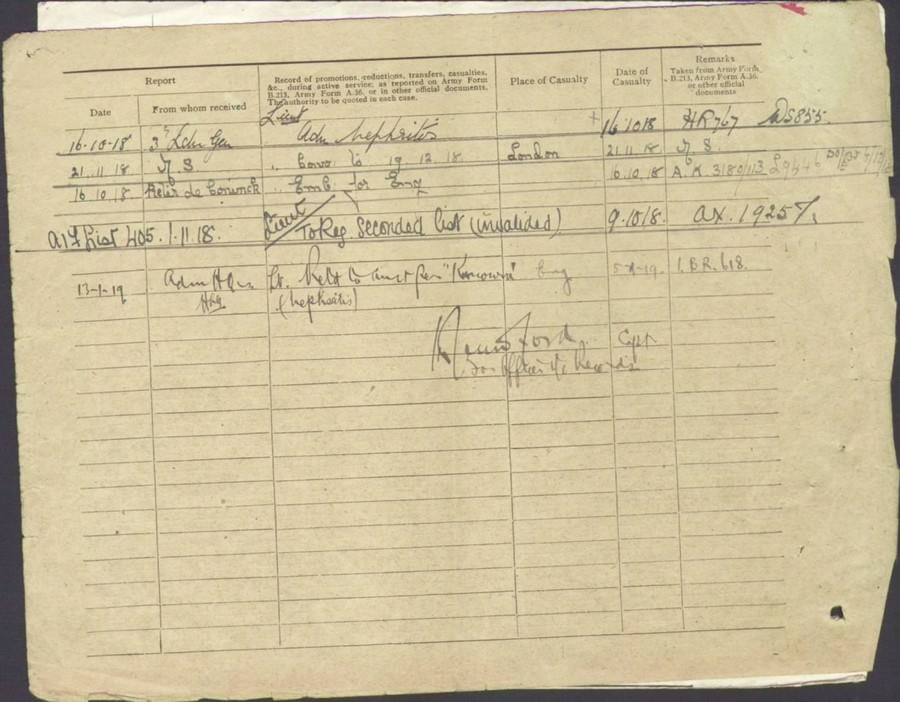 Report
Record of promotions, reductions, transfers, casualties, &c., during active service, as reported on Army Form B.213, Army Form A.36, or in other official documents. The authority to be quoted in each case.
Place of Casualty
Date of Casualty
Remarks
Taken from Army Form B.213, Army Form A.36, or other official documents
Date
From whom received
Lieut
16-10-18 3rd Ldn Gen Adm Nephritis 16.10.18 HR767 DS855.
21.11.18 " Conv. to 19.12.18 London 21.11.18
16.10.18 Pieter de Coninck " Emb. for Eng 16.10.18 A.K. 3180/113
Lieut
A.I.F List 405. 1.11.18. To Reg Seconded list (invalided) 9.10.18. AX. 19257/1
13-1-19 Adm HQrs Lt. Retd to Aust per "Karoola" Eng 5-1-19. I.B.R. 618.
(nephritis)
Capt
for Officer i/c Records